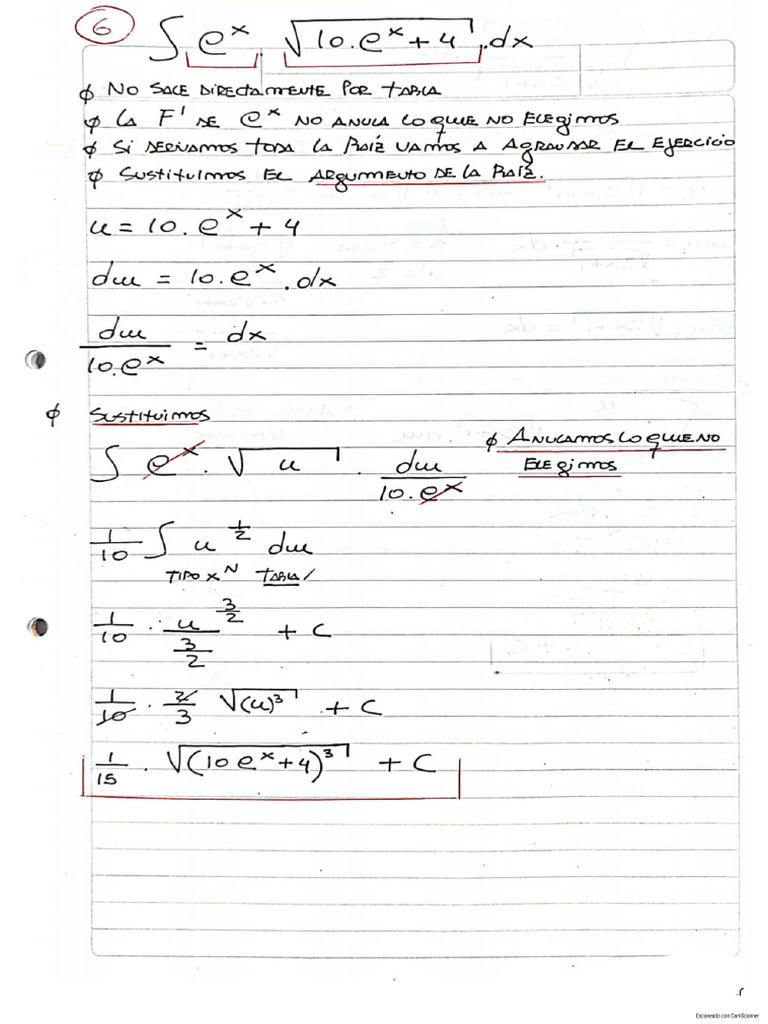 6
∫ e^x √(10.e^x + 4) .dx
φ NO SALE DIRECTAMENTE POR TABLA
φ LA F' DE e^x NO ANULA LO QUE NO ELEGIMOS
φ SI DERIVAMOS TODA LA RAÍZ VAMOS A AGRAVAR EL EJERCICIO
φ SUSTITUIMOS EL ARGUMENTO DE LA RAÍZ.
u = 10.e^x + 4
du = 10.e^x .dx
du / 10.e^x = dx
φ SUSTITUIMOS
φ ANULAMOS LO QUE NO ELEGIMOS
∫ e^x . √u . du / 10.e^x
1/10 ∫ u^(1/2) du
TIPO x^N TABLA/
1/10 . u^(3/2) / (3/2) + C
1/10 . 2/3 √(u)^3 + C
1/15 . √(10 e^x + 4)^3 + C
Escaneado con CamScanner